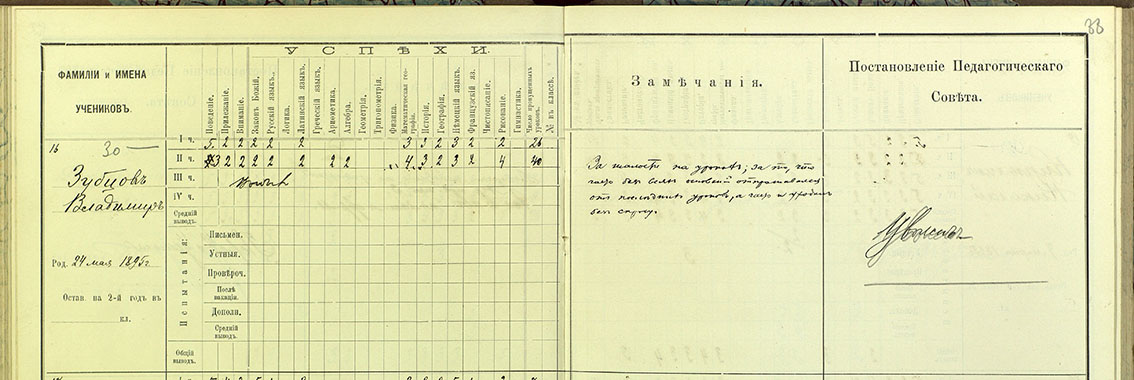 33
УСПѢХИ.
ФАМИЛІИ и ИМЕНА
УЧЕНИКОВЪ.
Поведеніе.
Прилежаніе.
Вниманіе.
Законъ Божій.
Русскій языкъ.
Логика.
Латинскій языкъ.
Греческій языкъ.
Ариѳметика.
Алгебра.
Геометрія.
Тригонометрія.
Физика.
Математическая географія.
Исторія.
Географія.
Нѣмецкій языкъ.
Французскій яз.
Чистописаніе.
Рисованіе.
Гимнастика.
Число пропущенныхъ уроковъ.
№ въ классѣ.
Замѣчанія.
Постановленіе Педагогическаго
Совѣта.
16
30 —
Зубцовъ
Владимиръ
Род. 24 мая 1895 г
Остан. на 2-й годъ въ
кл.
Испытанія:
I ч. 5 2 2 2 2 2 3 3 2 3 2 2 26
II ч. 3 2 2 2 2 2 2 2 4 3 2 3 2 4 40
III ч.
IV ч.
Средній
выводъ.
Письмен.
Устныя.
Провѣроч.
Послѣ
вакацій.
Дополн.
Средній
выводъ.
Общій
выводъ.
За шалости на урокѣ; за то, что
часто безъ
отъ послѣднихъ уроковъ, а часто и уходилъ
безъ спросу.
Уволенъ